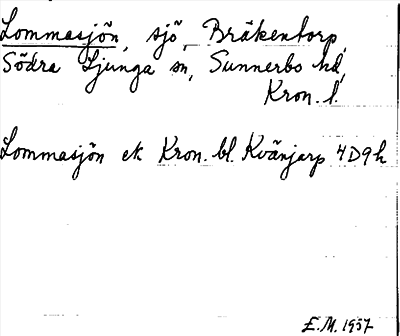 Lommasjön, sjö, Bräkentorp,
Södra Ljunga sn, Sunnerbo hd,
Kron. l.
Lommasjön ek Kron. bl. Kvänjarp 4D9h
E.M. 1957